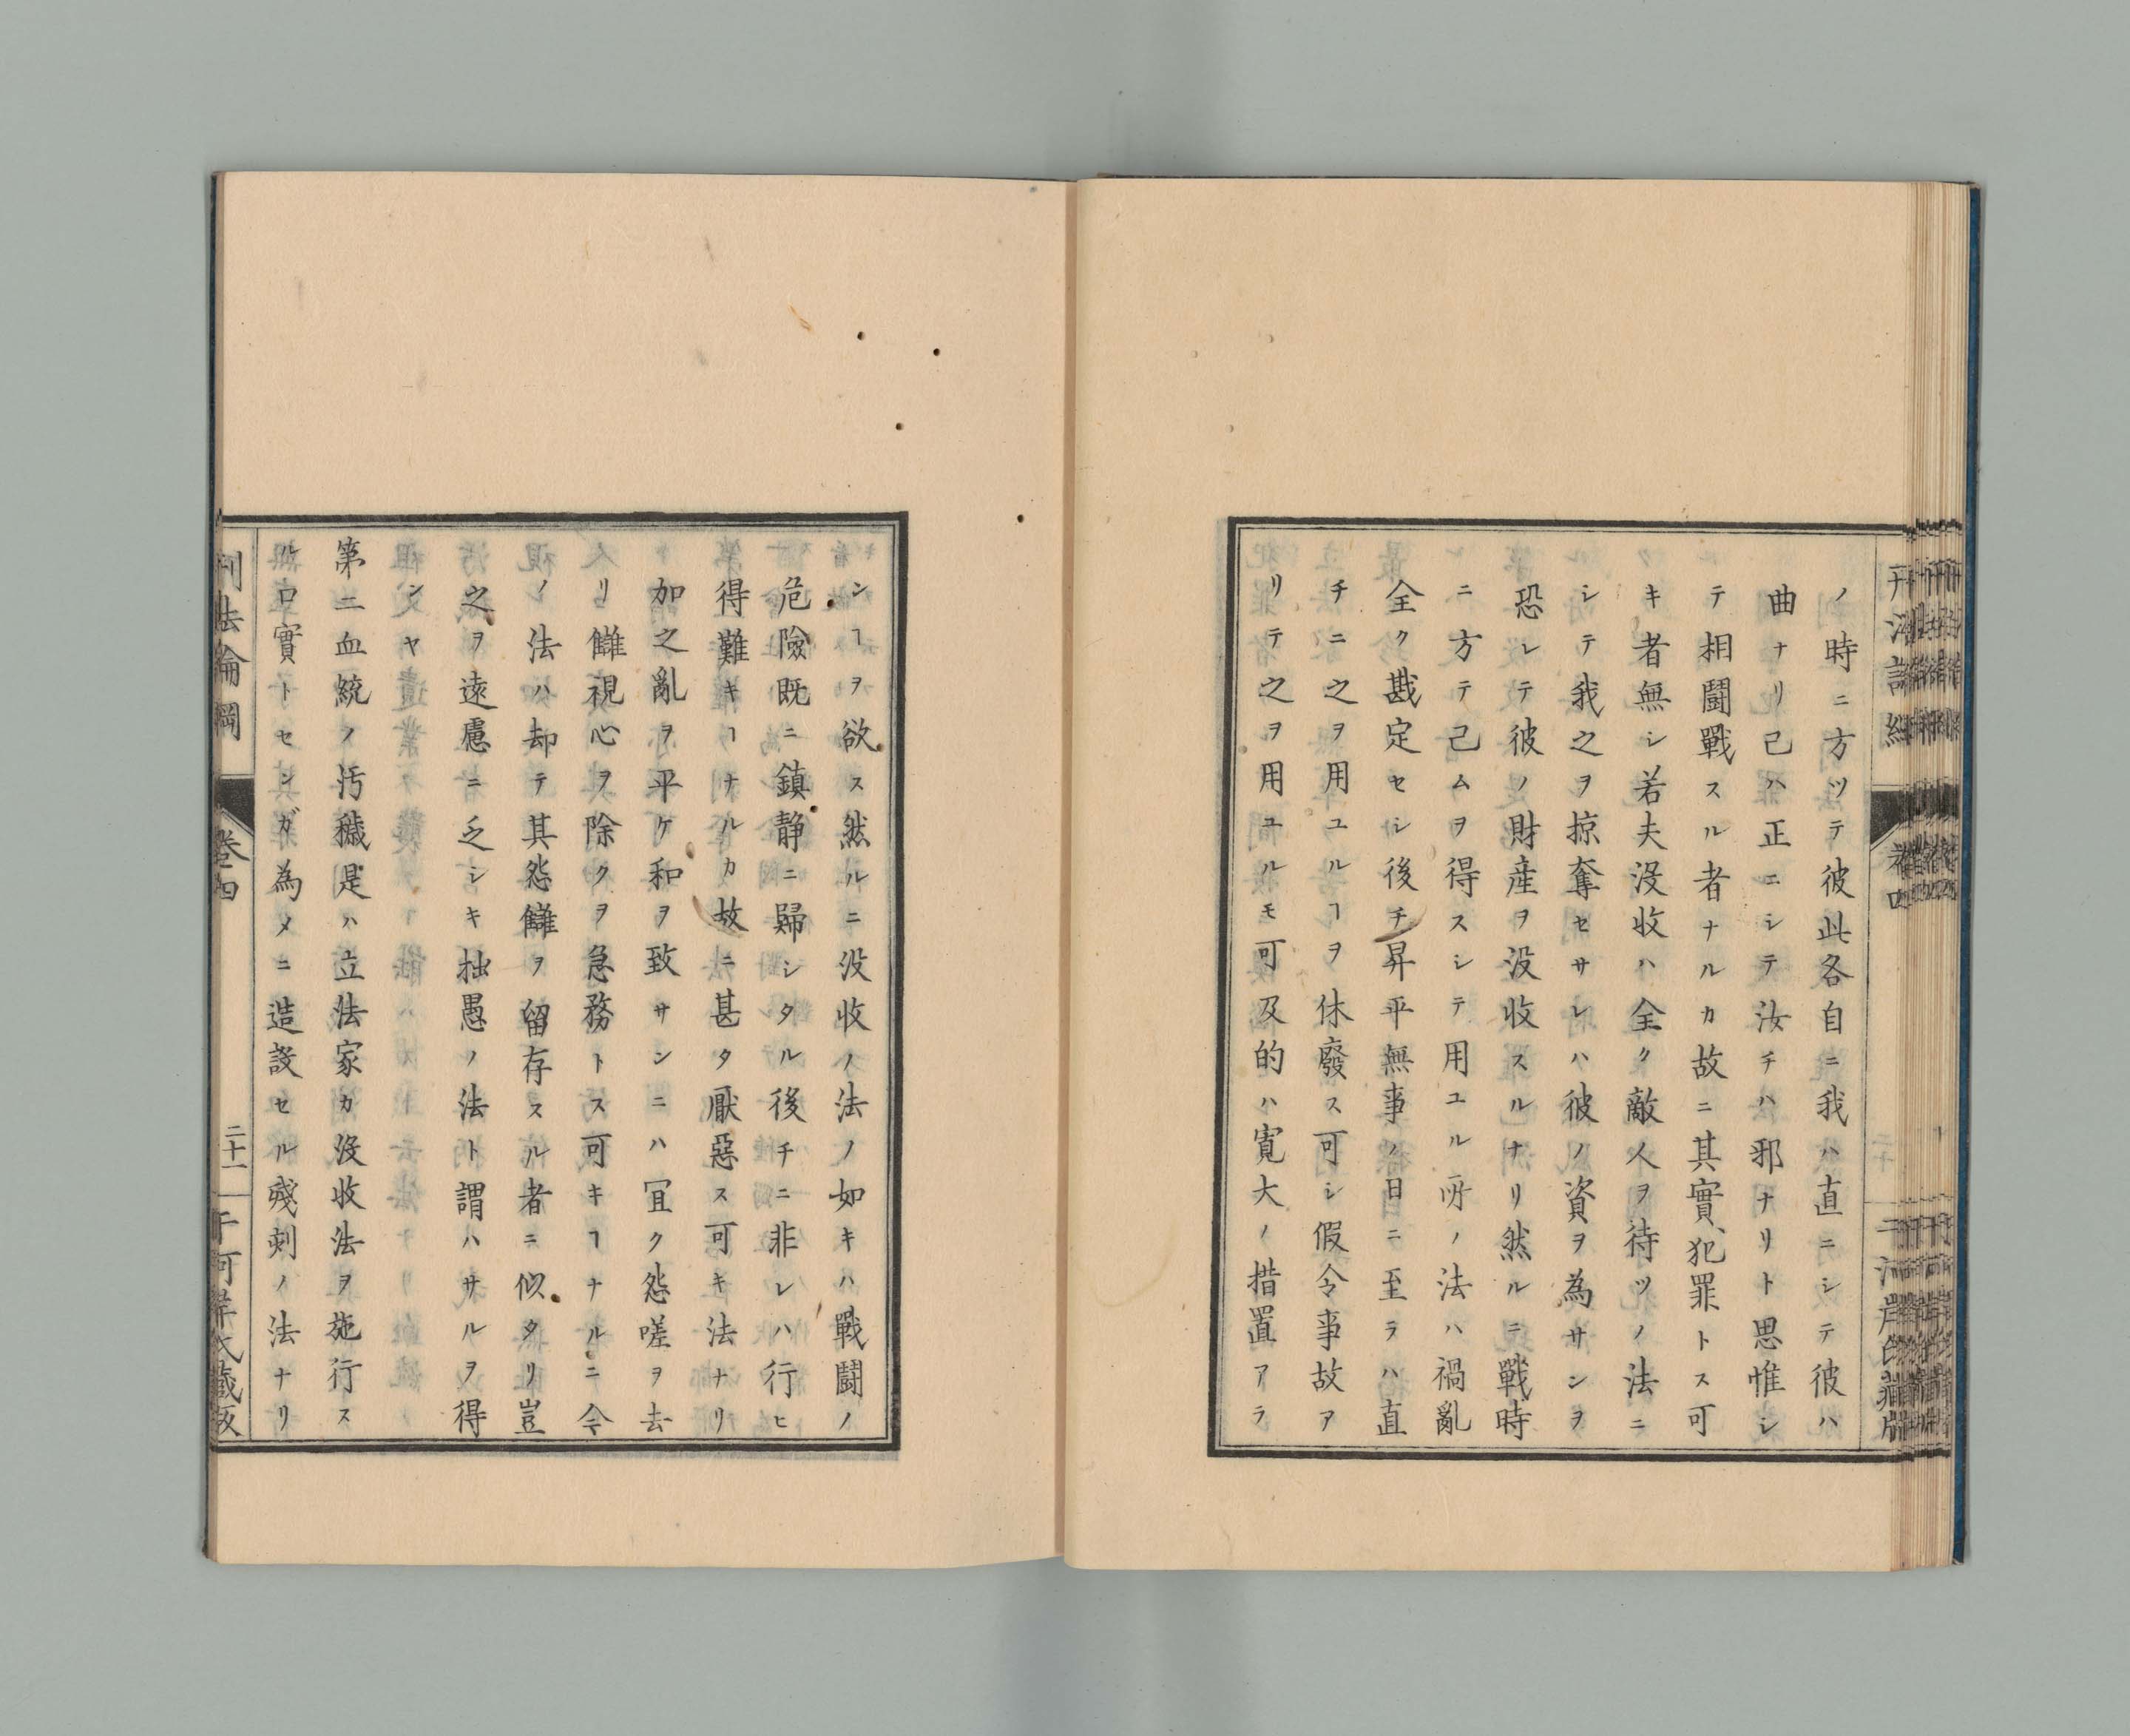 ノ時ニ方ツテ彼此各自ニ我ハ直ニシテ彼ハ
曲ナリ己ハ正ニシテ汝チハ邪ナリト思惟シ
テ相鬪戰スル者ナルカ故ニ其實、犯罪トス可
キ者無シ若夫没收ハ全ク敵人ヲ待ツノ法ニ
シテ我之ヲ掠奪セサレハ彼ノ資ヲ為サンヲ
恐レテ彼ノ財産ヲ没收スルナリ然ルニ戰時
ニ方テ己ムヲ得スシテ用ユル所ノ法ハ禍亂
全ク戡定セシ後チ昇平無事ノ日ニ至ラハ直
チニ之ヲ用ユルヿヲ休廢ス可シ假令事故ア
リテ之ヲ用ユルモ可及的ハ寬大ノ措置アラ
ンヿヲ欲ス然ルニ没收ノ法ノ如キハ戰鬪ノ
危險既ニ鎮静ニ歸シタル後チニ非レハ行ヒ
得難キヿナルカ故ニ甚タ厭惡ス可キ法ナリ
加之亂ヲ平ケ和ヲ致サンニハ冝ク怨嗟ヲ去
リ讎視心ヲ除クヲ急務トス可キヿナルニ今
ノ法ハ却テ其怨讎ヲ留存スル者ニ似タリ豈
之ヲ遠慮ニ乏シキ拙愚ノ法ト謂ハサルヲ得
ンヤ
第二血統ノ汚穢是ハ立法家カ没收法ヲ施行ス
ル口實トセンガ為メニ造設セル殘刻ノ法ナリ
刑法論綱
卷四
二十一